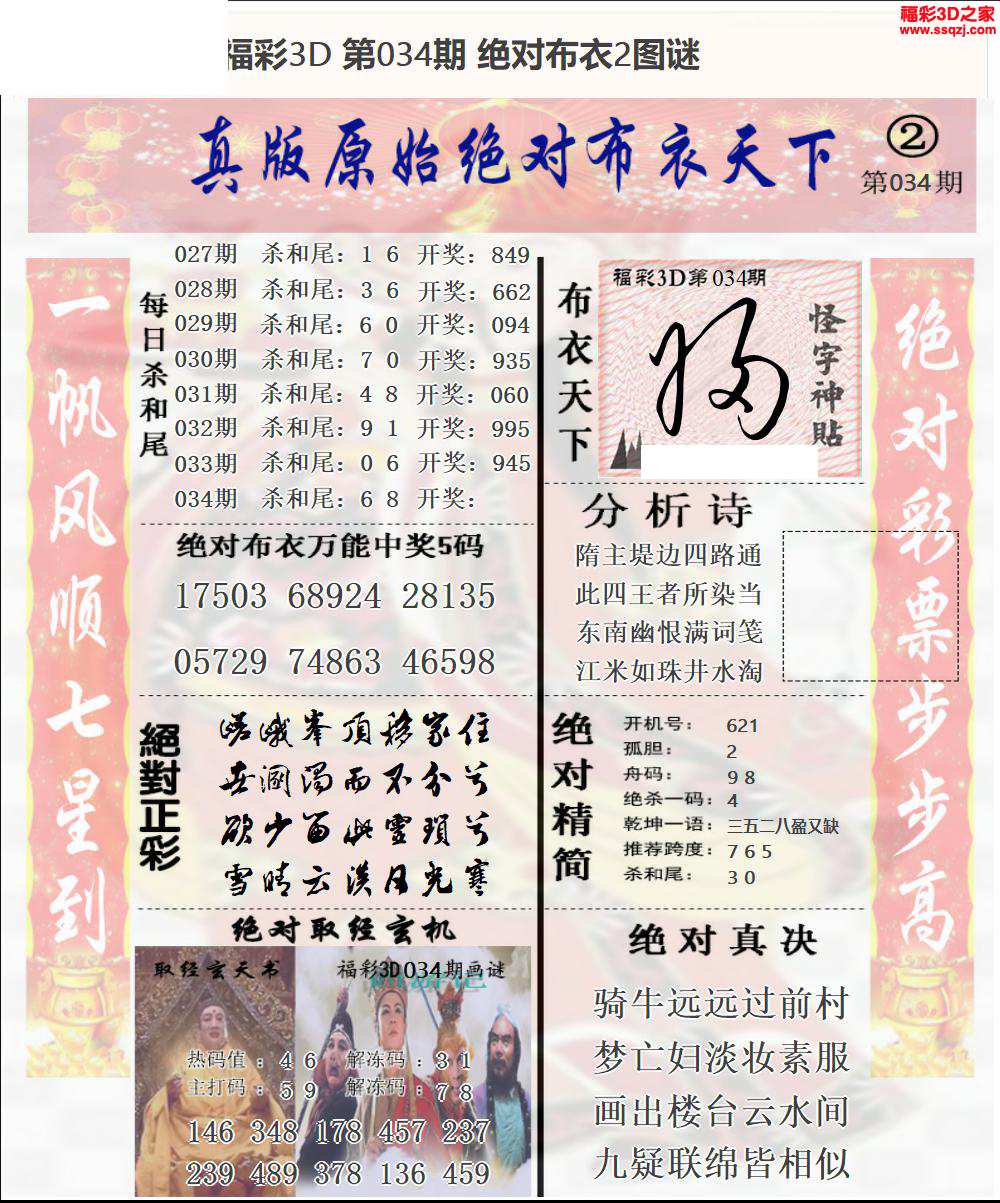 福彩3D之家
www.ssqzj.com
福彩3D 第034期 绝对布衣2图谜
真版原始绝对布衣天下
②
第034期
一帆风顺七星到
每日杀和尾
027期 杀和尾：1 6 开奖：849
028期 杀和尾：3 6 开奖：662
029期 杀和尾：6 0 开奖：094
030期 杀和尾：7 0 开奖：935
031期 杀和尾：4 8 开奖：060
032期 杀和尾：9 1 开奖：995
033期 杀和尾：0 6 开奖：945
034期 杀和尾：6 8 开奖：
绝对布衣万能中奖5码
17503 68924 28135
05729 74863 46598
絕對正彩
嵯峨峯顶移家住
世溷浊而不分兮
欲少留此灵琐兮
雪晴云淡日光寒
绝对取经玄机
取经玄天书
福彩3D034期画谜
热码值：4 6 解冻码：3 1
主打码：5 9 解冻码：7 8
146 348 178 457 237
239 489 378 136 459
布衣天下
福彩3D第034期
怪字神贴
分析诗
隋主堤边四路通
此四王者所染当
东南幽恨满词笺
江米如珠井水淘
绝对精简
开机号：621
孤胆：2
舟码：9 8
绝杀一码：4
乾坤一语：三五二八盈又缺
推荐跨度：7 6 5
杀和尾：3 0
绝对真决
骑牛远远过前村
梦亡妇淡妆素服
画出楼台云水间
九疑联绵皆相似
绝对彩票步步高